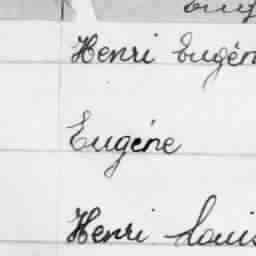 Henri Eugèn
Eugène
Henri Louis